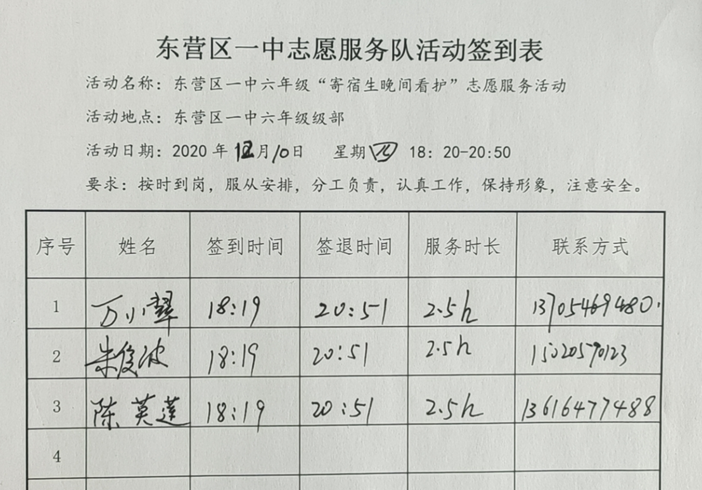 东营区一中志愿服务队活动签到表
活动名称：东营区一中六年级“寄宿生晚间看护”志愿服务活动
活动地点：东营区一中六年级级部
活动日期：2020 年 12月10日 星期四 18：20-20:50
要求：按时到岗，服从安排，分工负责，认真工作，保持形象，注意安全。
序号 姓名 签到时间 签退时间 服务时长 联系方式
1 万小翠 18:19 20:51 2.5h 13705469480
2 朱俊波 18:19 20:51 2.5h 15020570123
3 陈英莲 18:19 20:51 2.5h 13616477488
4